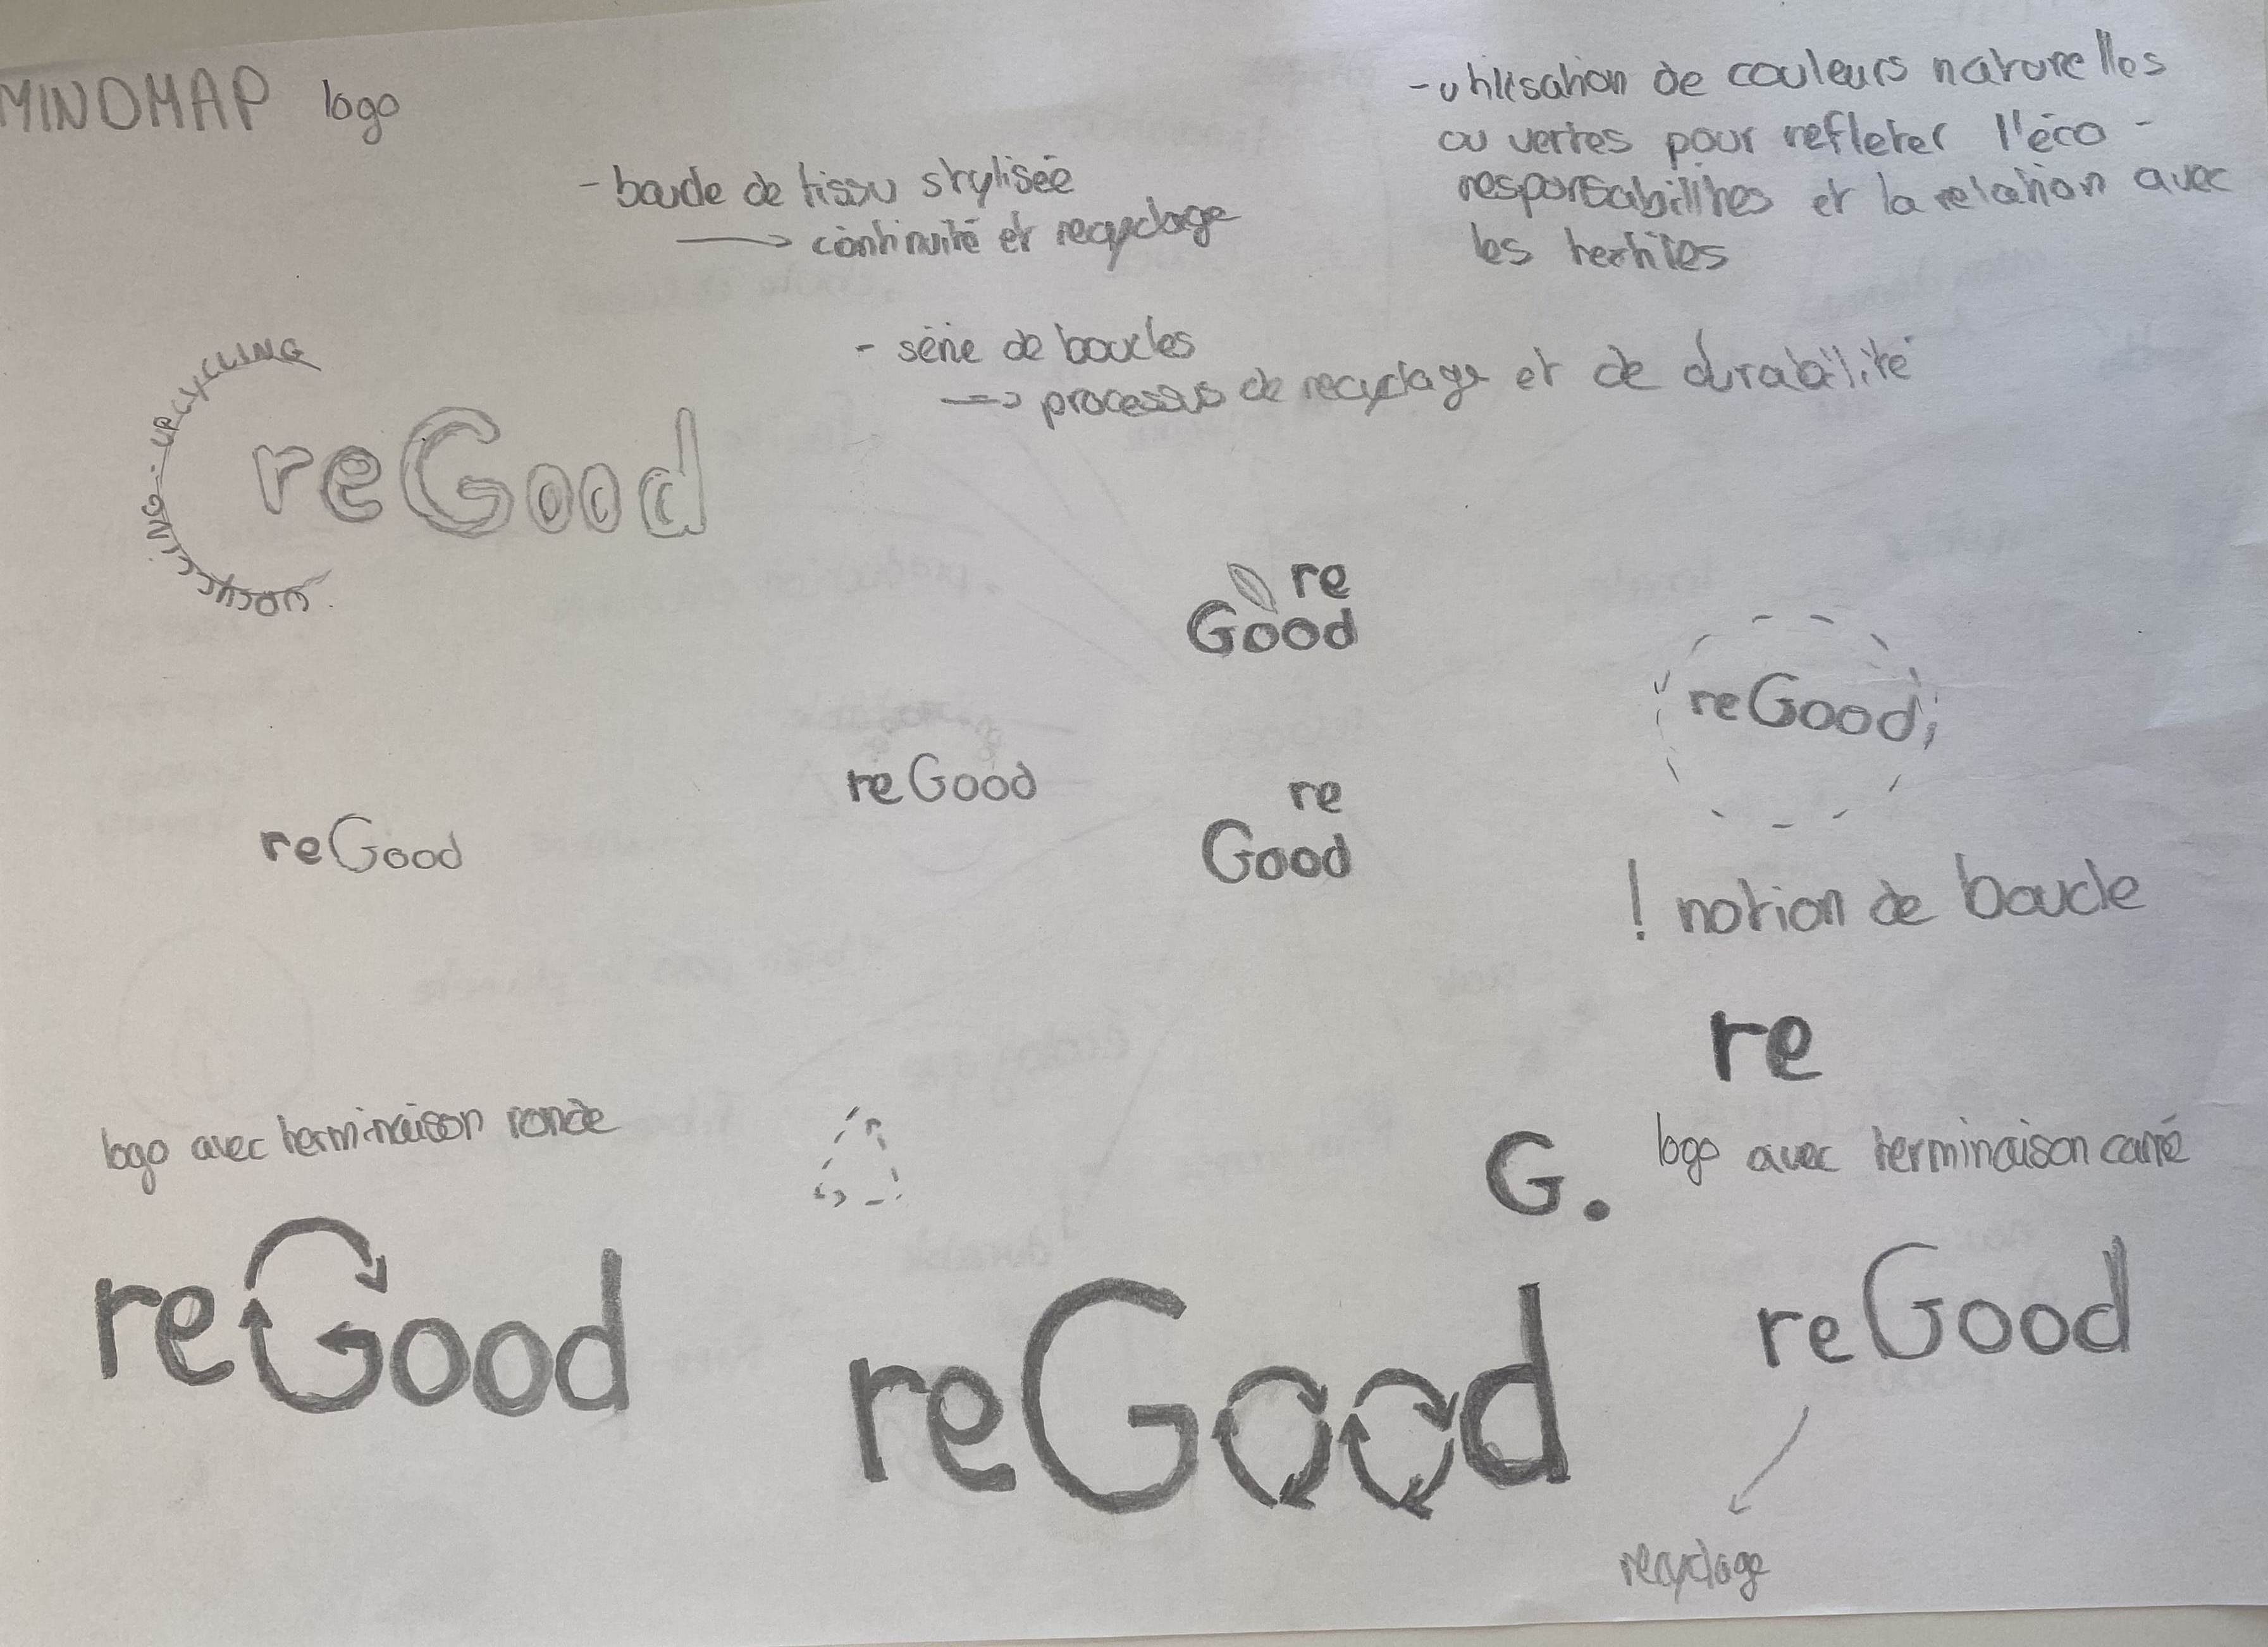 MINDMAP logo
- boucle de tissu stylisée
→ continuité et recyclage
- utilisation de couleurs naturelles
ou vertes pour refleter l'éco-
responsabilités et la relation avec
les textiles
- série de boucles
→ processus de recyclage et de durabilité
UPCYCLING
reGood
re
Good
reGood
reGood
re
Good
reGood
! notion de boucle
re
G.
logo avec terminaison ronde
logo avec terminaison carré
reGood
reGood
reGood
recyclage